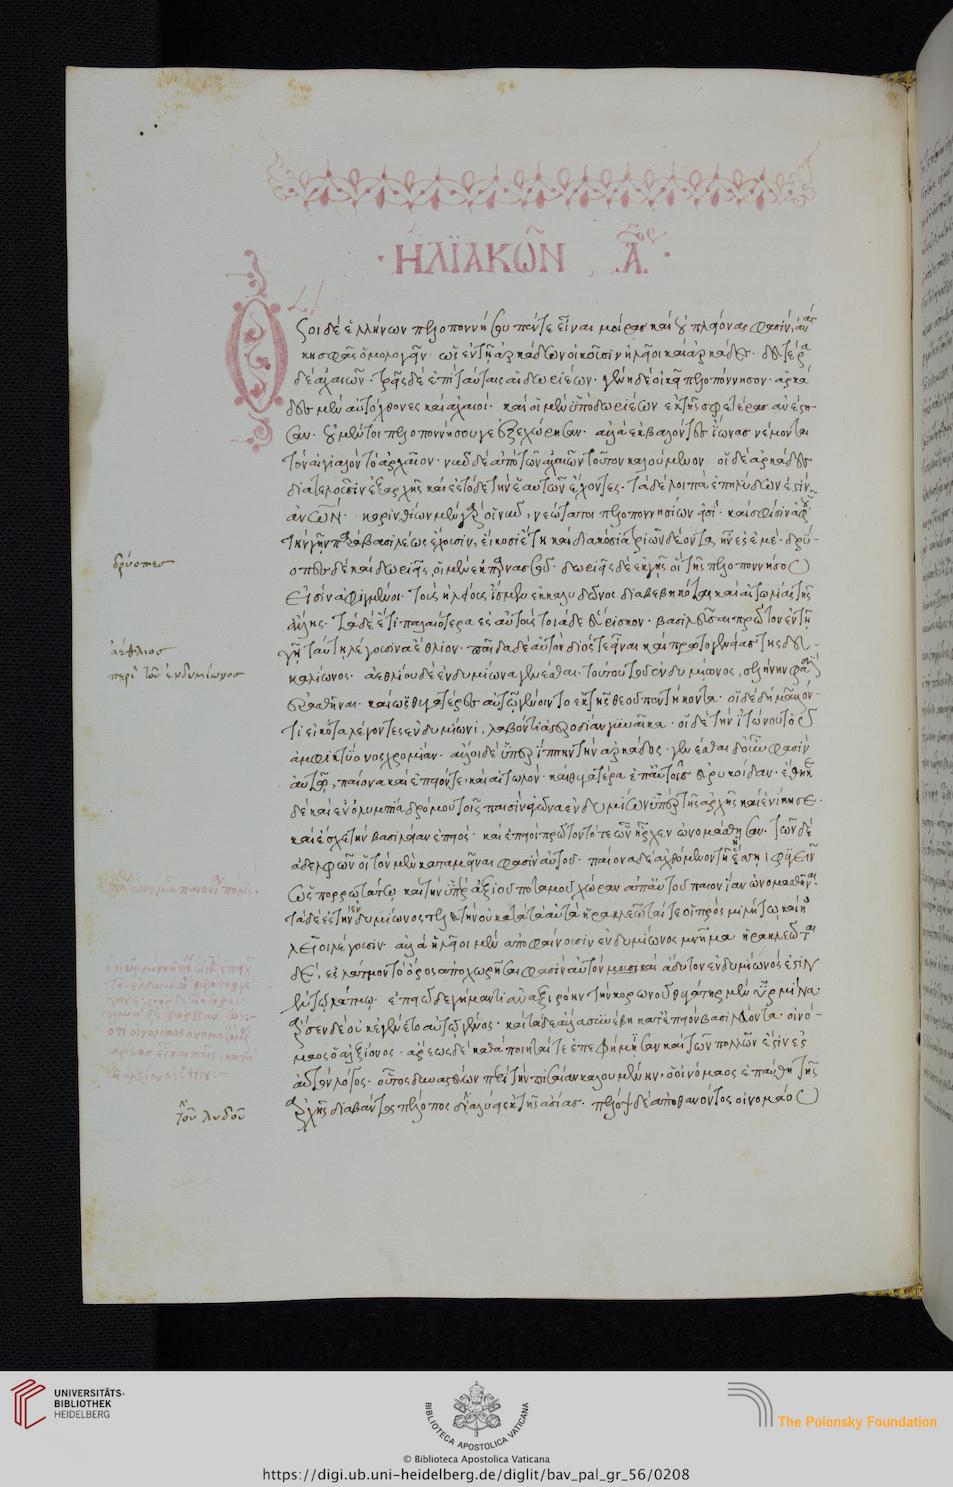 ἨΛΪΑΚΩ͂Ν Α
Ὅσοι δὲ ἑλλήνων πελοποννήσου πέντε εἶναι μοίρας καὶ οὐ πλείονας φασίν, ἀνάγ
κη σφᾶς ὁμολογεῖν ὡς ἐν τῇ ἀρκάδων οἰκοῦσιν ἠλεῖοι καὶ ἀρκάδες. δευτέρα
δὲ ἀχαιῶν. τρεῖς δὲ ἐπὶ ταύταις αἱ δωριέων. γένη δὲ οἰκεῖ πελοπόννησον. ἀρκά
δες μὲν αὐτόχθονες καὶ ἀχαιοί. καὶ οἱ μὲν ὑπὸ δωριέων ἐκ τῆς σφετέρας ἀνέστη
σαν. οὐ μέντοι πελοποννήσου γε ἐξεχώρησαν. ἀλλὰ ἐκβαλόντες ἴωνας νέμονται
τὸν αἰγιαλὸν τὸ ἀρχαῖον. νῦν δὲ ἀπὸ τῶν ἀχαιῶν τούτων καλούμενον οἱ δὲ ἀρκάδες
διατελοῦσιν ἐξ ἀρχῆς καὶ ἐς τόδε τὴν ἑαυτῶν ἔχοντες. τὰ δὲ λοιπὰ ἐπηλύδων ἐστὶν
ἀνθρώπων. κορινθίων μὲν γὰρ οἱ νῦν, νεώτατοι πελοποννησίων εἰσί. καὶ σφίσιν ἀφ οὗ
τὴν γῆν παρὰ βασιλέως ἔχουσιν, εἴκοσι ἔτη καὶ διακόσια τριῶν δέοντα ἦν ἐς ἐμέ. δρύ
οπες δὲ καὶ δωριεῖς, οἱ μὲν ἐκ παρνασοῦ. δωριεῖς δὲ ἐκ τῆς οἴτης πελοπόννησον
εἰσὶν ἀφιγμένοι. τοὺς ἠλείους ἴσμεν ἐκ καλυδῶνος διαβεβηκότας καὶ αἰτωλίας τῆς
ἄλλης. τὰ δὲ ἔτι παλαιότερα ἐς αὐτοὺς τοιάδε εὕρισκον. βασιλεῦσαι πρῶτον ἐν τῇ
γῇ ταύτῃ λέγουσιν ἀέθλιον. παῖδα δὲ αὐτὸν διός τε εἶναι καὶ πρωτογενείας τῆς δευ
καλίωνος. ἀεθλίου δὲ ἐνδυμίωνα γενέσθαι. τούτου τοῦ ἐνδυμίωνος, σελήνην φασὶν
ἐρασθῆναι. καὶ ὡς θυγατέρες αὐτῷ γένοιντο ἐκ τῆς θεοῦ πεντήκοντα. οἱ δὲ δὴ μᾶλλόν
τι εἰκότα λέγοντες ἐνδυμίωνι, λαβόντι ἀστεροδίαν γυναῖκα. οἱ δὲ τὴν ἰτώνου τοῦ
ἀμφικτύονος χρομίαν. ἄλλοι δὲ ὑπερίππην τὴν ἀρκάδος. γενέσθαι δ οὖν φασὶν
αὐτῷ, παίονα καὶ ἐπειόν τε, καὶ αἰτωλόν. καὶ θυγατέρα ἐπ αὐτοῖς εὐρυκύδαν. ἔθηκε
δὲ καὶ ἐν ὀλυμπίᾳ δρόμου τοῖς παισὶν ἀγῶνα ἐνδυμίων ὑπὲρ τῆς ἀρχῆς καὶ ἐνίκησε.
καὶ ἔσχε τὴν βασιλείαν ἐπειός. καὶ ἐπειοὶ πρῶτον τότε ὧν ἦρχεν ὠνομάσθησαν. τῶν δὲ
ἀδελφῶν οἱ τὸν μὲν καταμεῖναι φασὶν αὐτοῦ. παίονα δὲ ἀχθόμενον τῇ ἥσσῃ φυγεῖν
ὡς πορρωτάτω καὶ τὴν ὑπὲρ ἀξιοῦ ποταμοῦ χώραν ἀπ αὐτοῦ παιονίαν ὠνομασθῆναι.
τὰ δὲ ἐς τὴν ἐνδυμίωνος τελευτὴν οὐ κατὰ τὰ αὐτὰ ἡρακλεῶταί τε οἱ πρὸς μιλήτῳ καὶ ἠ
λεῖοι λέγουσιν. ἀλλὰ ἠλεῖοι μὲν ἀποφαίνουσιν ἐνδυμίωνος μνῆμα. ἡρακλεῶται
δὲ, ἐς λάτμον τὸ ὄρος ἀποχωρῆσαι φασὶν αὐτόν καὶ ἄδυτον ἐνδυμίωνός ἐστιν
ἐν τῷ λάτμῳ. ἐπειῷ δὲ γήμαντι ἀναξιρόην τὴν κορώνου θυγάτηρ μὲν ὑρμίνα
ἄρσεν δὲ οὐκ ἐγένετο αὐτῷ γένος. καὶ τάδε ἄλλα συνέβη κατ ἐπειὸν βασιλεύοντα. οἰνό
μαος ὁ ἀλξίονος. ἄρεως δὲ καθὰ ποιηταί τε ἐπεφήμησαν καὶ τῶν πολλῶν ἐστὶν ἐς
αὐτὸν λόγος. οὗτος δυναστεύων περὶ τὴν πισαίαν καλουμένην, ὁ οἰνόμαος ἐπαύθη τῆς
ἀρχῆς διαβάντος πέλοπος τοῦ λυδοῦ ἐκ τῆς ἀσίας. πέλοψ δὲ ἀποθανόντος οἰνομάου
δρύοπες
ἀέθλιος
περὶ τοῦ ἐνδυμίωνος
τοῦ λυδοῦ
UNIVERSITÄTS-
BIBLIOTHEK
HEIDELBERG
BIBLIOTECA APOSTOLICA VATICANA
The Polonsky Foundation
© Biblioteca Apostolica Vaticana
https://digi.ub.uni-heidelberg.de/diglit/bav_pal_gr_56/0208